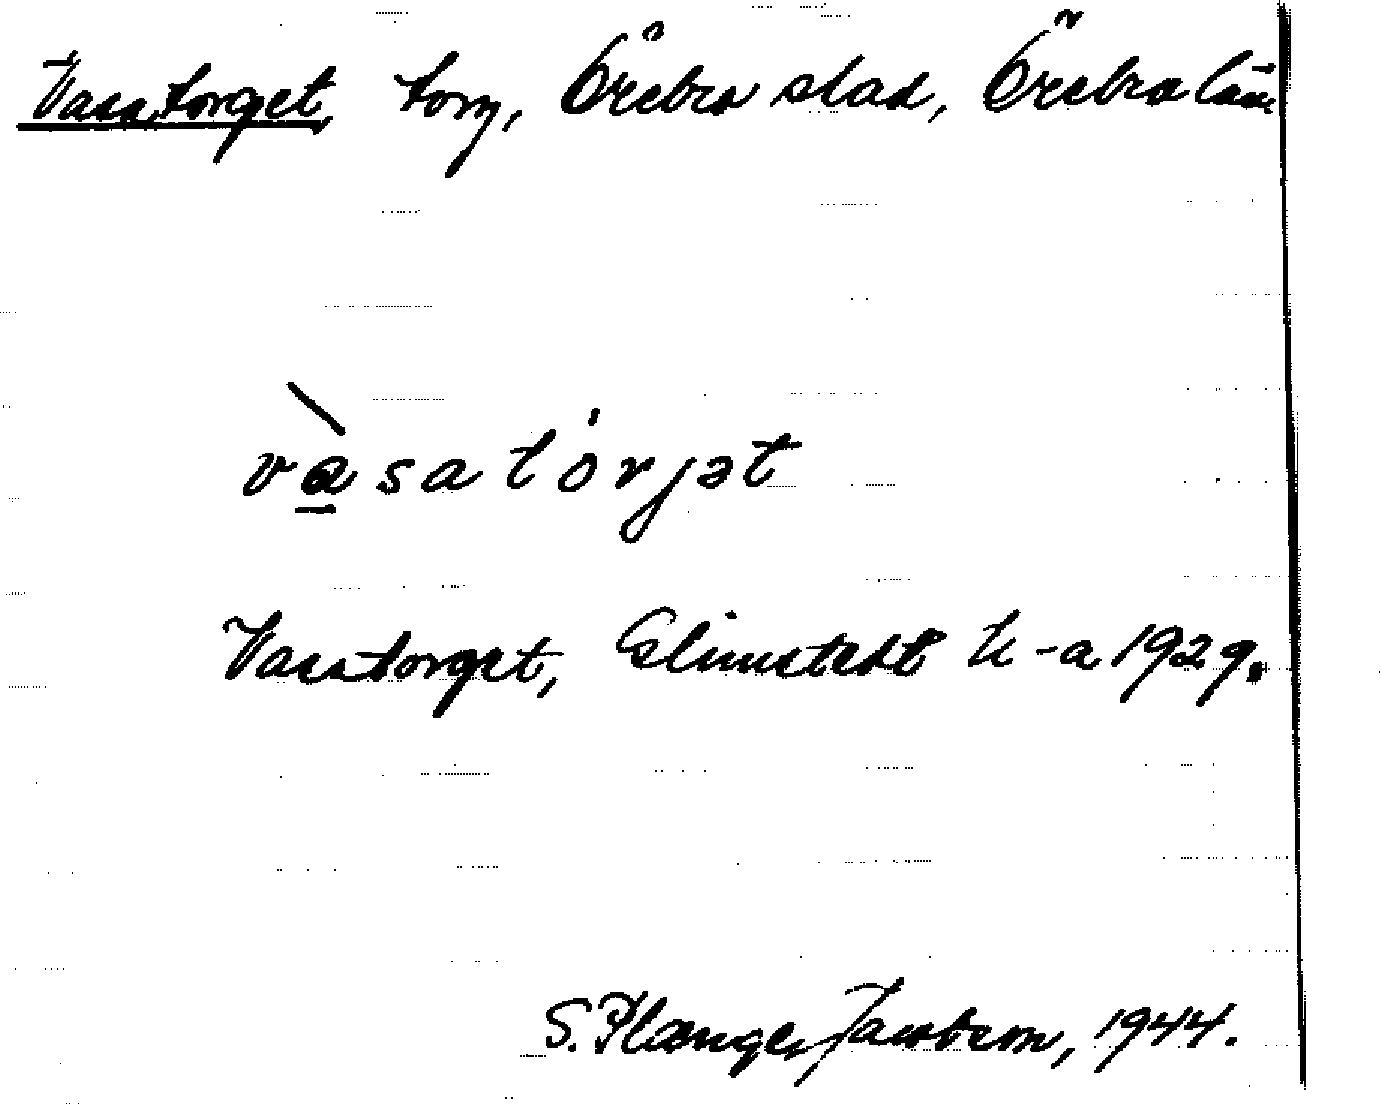 Vasatorget, torg, Örebro stad, Örebro län
vàsatórjət
Vasatorget, Elmstedt k-a 1929.
S. Plænge Jacobson, 1944.